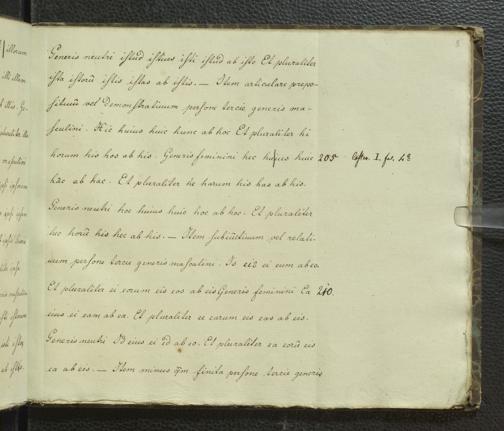 Generis neutri istud istius isti istud ab isto Et pluraliter
ista istorū istis istas ab istis. — Item articulare prepo-
situm vel Demonstrativum persone tercie generis ma-
sculini. Hic huius huic hunc ab hoc Et pluraliter hi
horum his hos ab his. Generis feminini hec huius huic 205
hāc ab hac. Et pluraliter he harum his has ab his.
Generis neutri hoc huius huic hoc ab hoc. Et pluraliter
hec horū his hec ab his. — Item subiunctivum vel relati-
uum persone tercie generis masculini. Is eiꝰ ei eum ab eo.
Et pluraliter ei eorum eis eos ab eis Generis feminini Ea 210.
eius ei eam ab ea. Et pluraliter ee earum eis eas ab eis.
Generis neutri Id eius ei id ab eo. Et pluraliter ea eorū eis
ea ab eis. — Item minus q̄m finita persone tercie generis